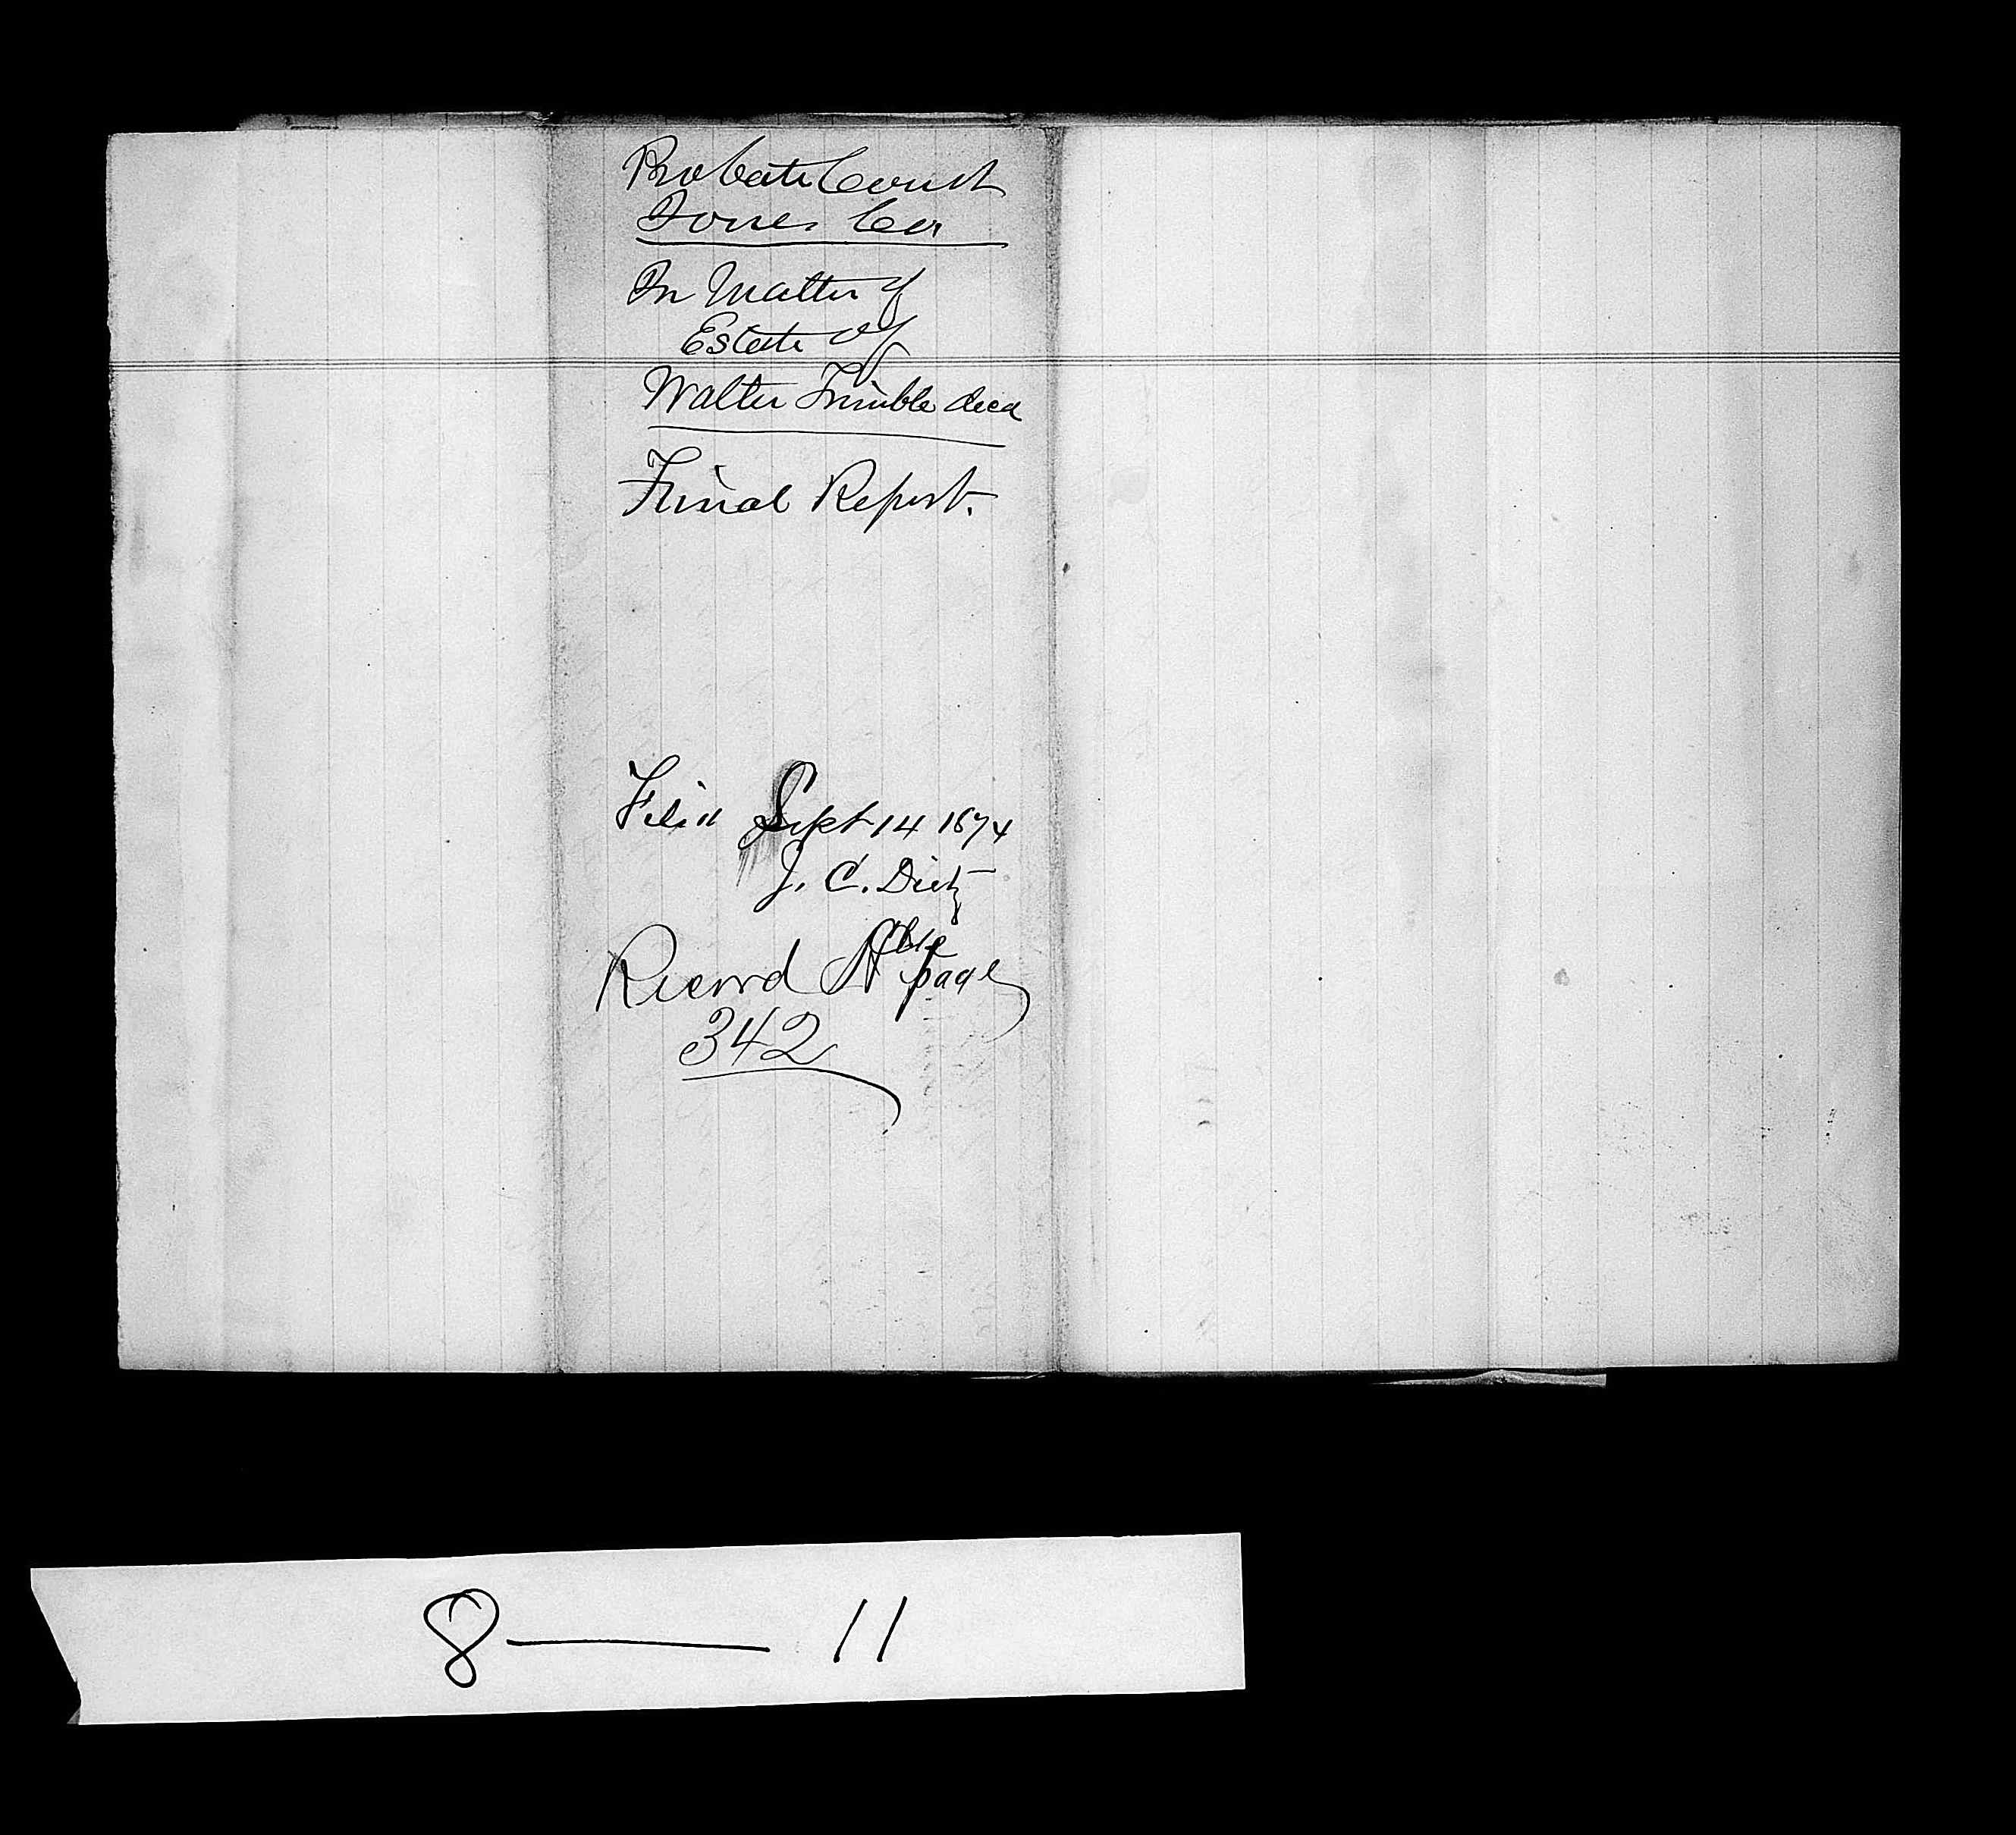 Probate Court
Jones Co
In Matter of
Estate of
Walter Trimble decd
Final Report.
Filed Sept 14 1874
J. C. Dietz
Record A page
342
8 — 11